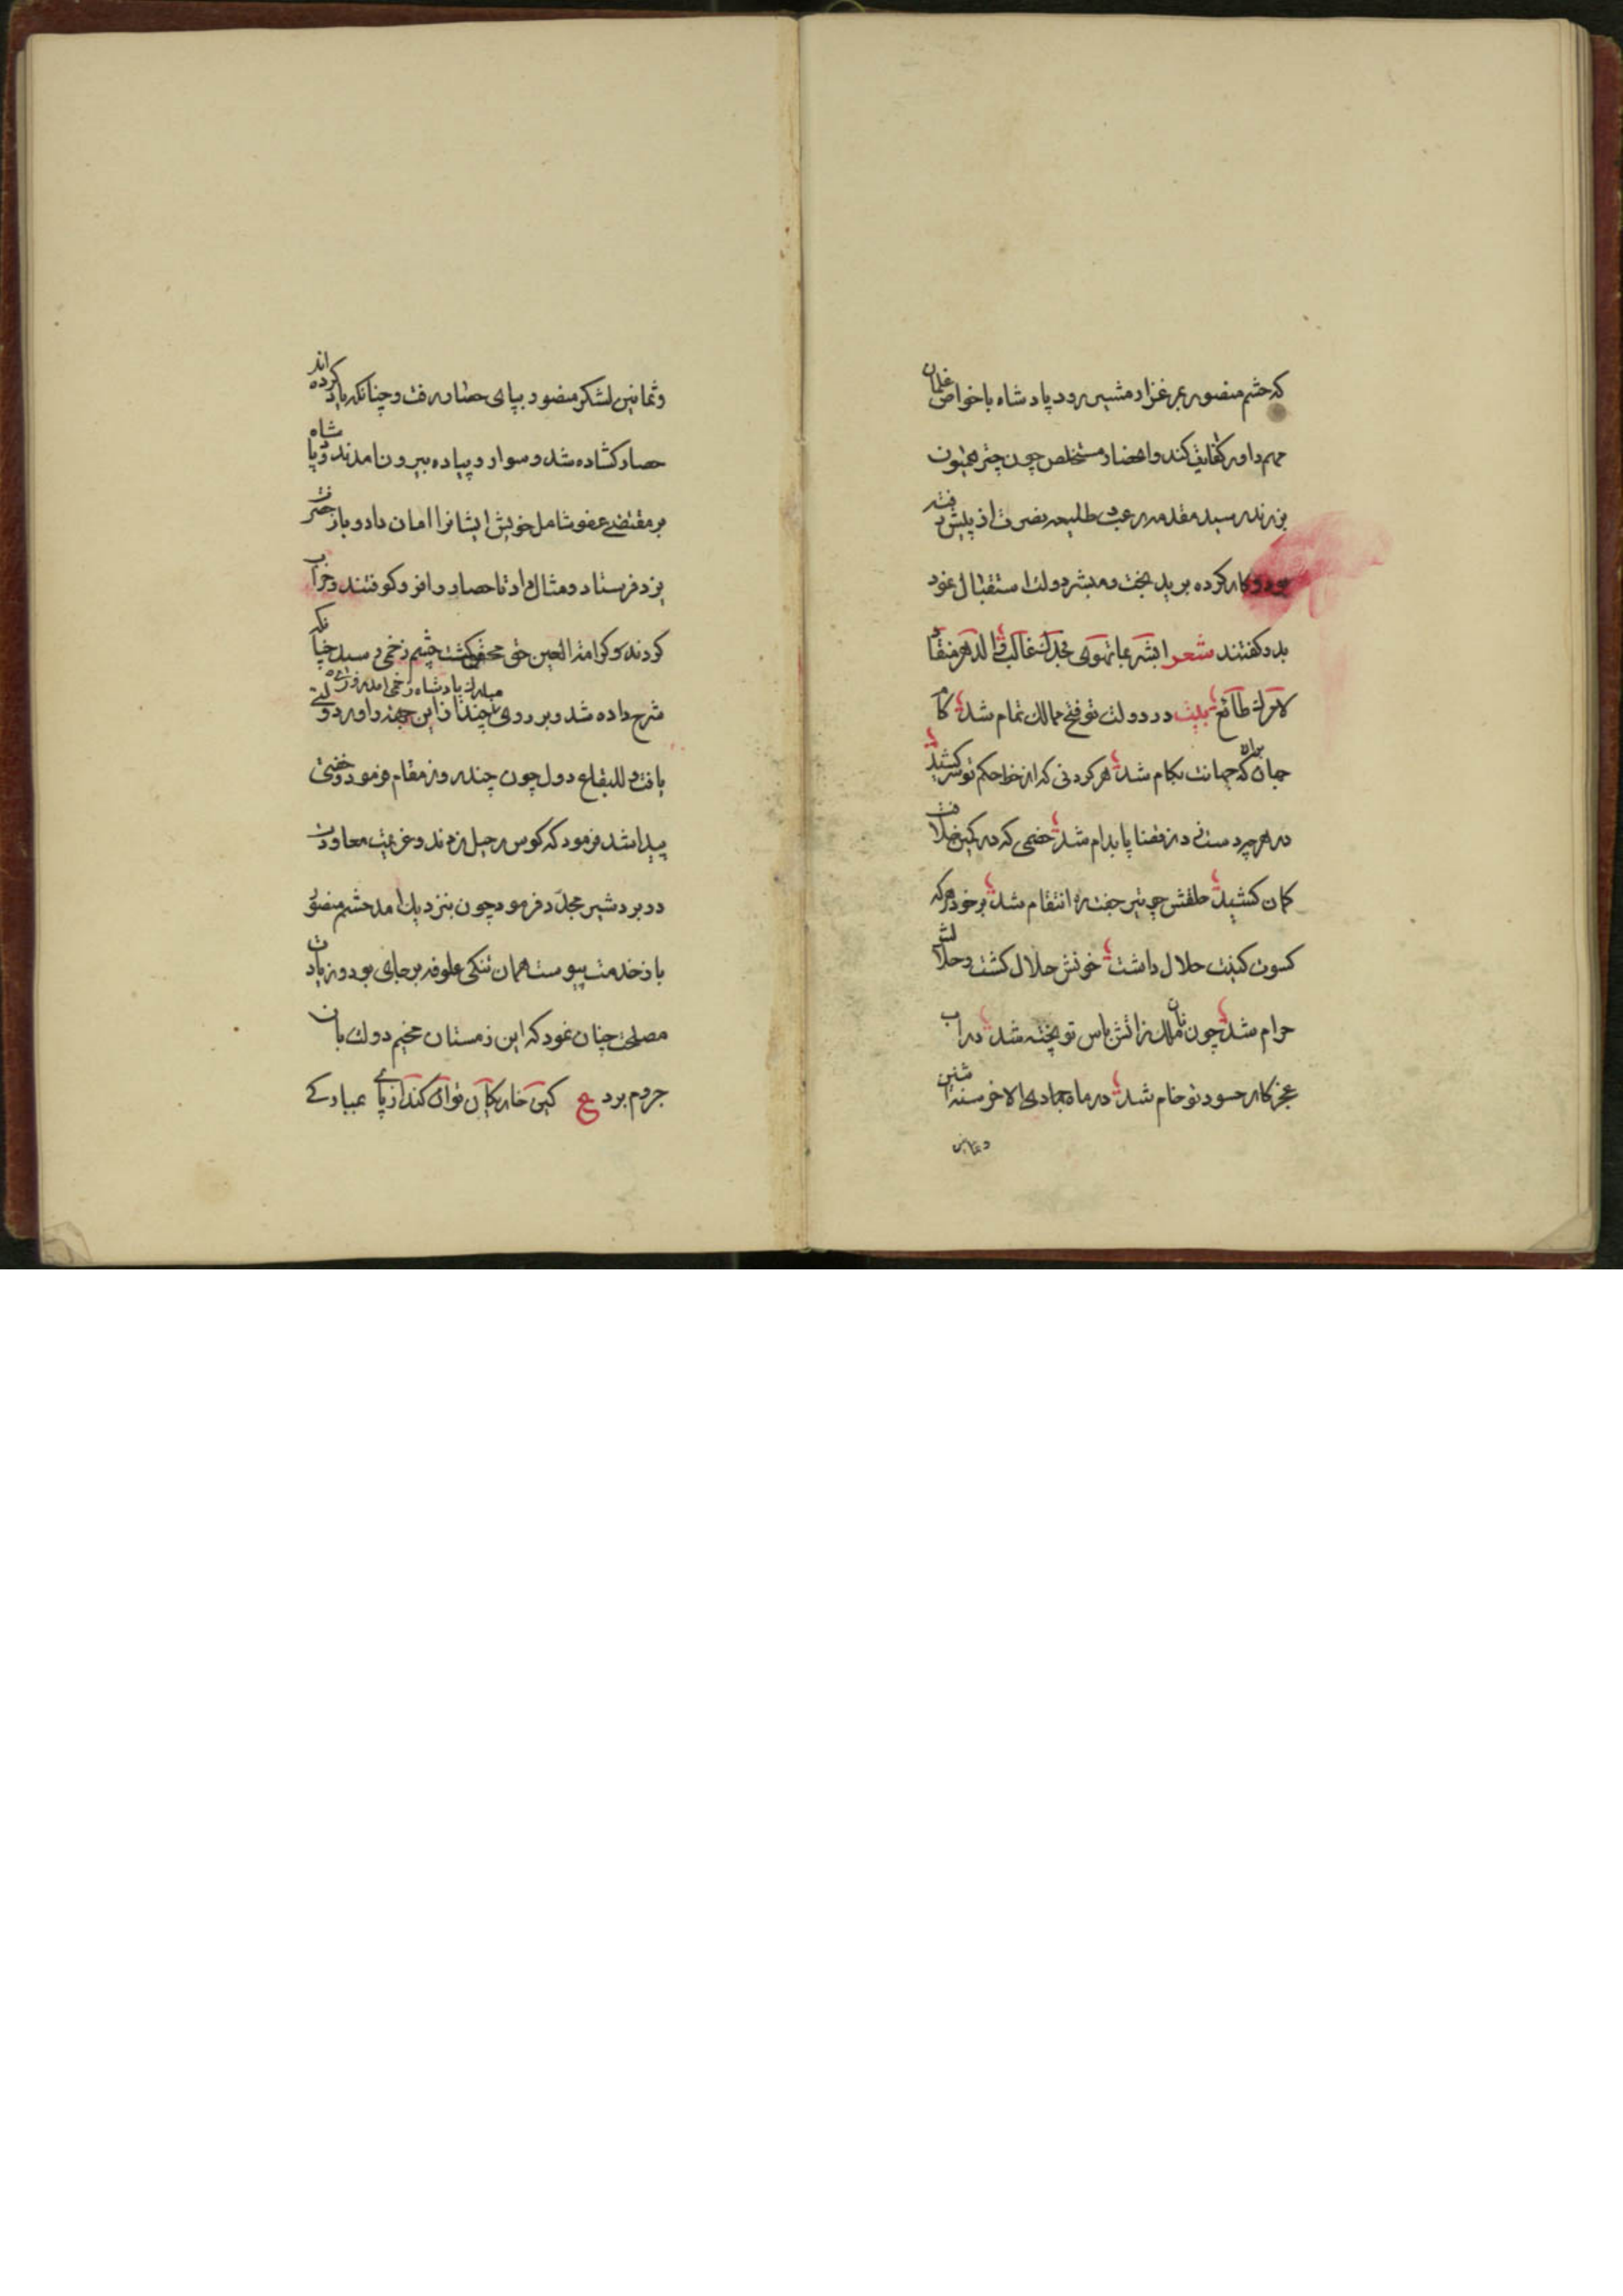 که حشم منصور بمرغزار مشیز رود پادشاه با خواص غلمان
مهم داور کفایت کند و انحصار مستخلص چون چتر همیون
بزرند رسید مقدمه رعب و طلیعه نصرت از پیش رفته
بود و کار کرده برید بخت و مبشر دولت استقبال نمود
بدو گفتند شعر ابشر بما تهوی فجدک غالب و الدهر منقاد
لامرک طائع بیت در دولت تو فتح ممالک تمام شد کام
جهان بران که جهانت بکام شد هر گردنی که از خط حکم تو سر کشید
در هرچه دست زد از قضا پا بدام شد خصمی که در کمین خلافت
کمان کشید حلقش چو تیر جفت ره انتقام شد بر خود هر که
کسوت کینت حلال داشت خونش حلال گشت و حلالش
حرام شد چون نان ملک ز آتش باس تو پخته شد در آب
عجز کار حسود تو خام شد در ماه جمادی الاخر سنه اثنین
و ثمانین
و ثمانین لشکر منصور بپای حصار رفت و چنانکه یاد کرده اند
حصار گشاده شد و سوار و پیاده بیرون آمدند و پادشاه
بر مقتضی عفو شامل خویش ایشانرا امان داد و باز حضرت
یزد فرستاد و مثال داد تا حصار را فرو کوفتند و خراب
کردند و کرامة العین حق محض گشت چشم زخمی رسید چنانکه
شرح داده شد و بر روی مبارک پادشاه زخمی آمد و روزی چند از این جهة را ورد دولتی
یافت و للبقاع دول چون چند روز مقام فرمود و خفتی
پیدا شد فرمود که کوس رحیل زدند و عزیمت معاودت
در بردشیر مجدد فرمود چون بنزدیک آمد حشم منصور
باز خدمت پیوست همان تنگی علوفه بر جای بود و زیادت
مصلحت چنان نمود که این زمستان مخیم دولت بان
جروم برد ع کین خار بکان توان کند از پای عباد کے